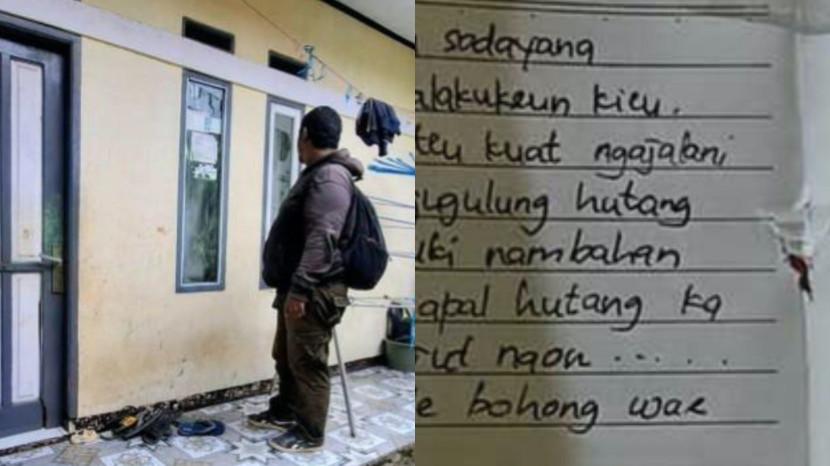 sadayang
alakukeun kieu.
teu kuat ngajalani
gulung hutang
nambahan
apal hutang ka
ngon .....
bohong wae